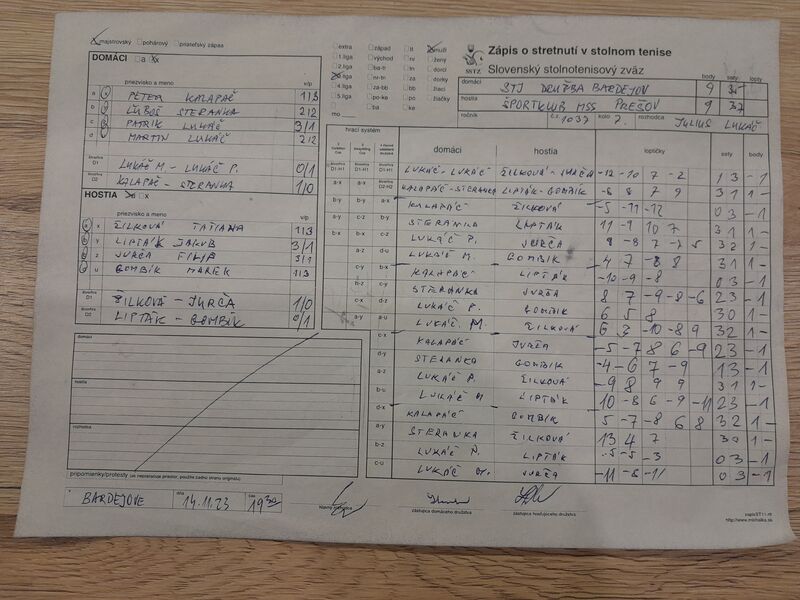 majstrovský pohárový priateľský zápas
Zápis o stretnutí v stolnom tenise
Slovenský stolnotenisový zväz
DOMÁCI a x
extra západ muži
1.liga východ ženy
2.liga dorci
3.liga dorky
4.liga za-bb žiaci
5.liga po-ke žiačky
ba ke
mo
SSTZ
body sety lopty
domáci STJ DRUŽBA BARDEJOV 9
hostia ŠPORTKLUB MSS PREŠOV 9 37
ročník č.s. 1037 kolo 7. JULIUS LUKÁČ
priezvisko a meno v/p
a PETER KALAPÁČ 1 1 3
b ĽUBOŠ STERANKA 2 1 2
c PATRIK LUKÁČ 3/1
d MARTIN LUKÁČ 2 1 2
štvorhra D1 LUKÁČ M. - LUKÁČ P. 0/1
D2 KALAPÁČ - STERANKA 1/0
HOSTIA a x
priezvisko a meno v/p
x ŽILKOVÁ TATIANA 1 1 3
y LIPTÁK JAKUB 3/1
z JURČA FILIP 3/1
u GOMBÍK MAREK 1 1 3
štvorhra D1 ŽILKOVÁ - JURČA 1/0
D2 LIPTÁK - GOMBÍK 0/1
hrací systém domáci hostia loptičky sety body
LUKÁČ - LUKÁČ ŽILKOVÁ - JURČA -12 -10 7 -2 1 3 - 1
KALAPÁČ - STERANKA LIPTÁK - GOMBÍK -8 8 7 9 3 1 1 -
KALAPÁČ ŽILKOVÁ -5 -11 -12 0 3 - 1
STERANKA LIPTÁK 11 -9 10 7 3 1 1 -
LUKÁČ P. JURČA 9 -8 7 -7 5 3 2 1 -
LUKÁČ M. GOMBÍK 4 7 -8 8 3 1 1 -
KALAPÁČ LIPTÁK -10 -9 -8 0 3 - 1
STERANKA JURČA 8 7 -9 -8 -6 2 3 - 1
LUKÁČ P. GOMBÍK 6 5 8 3 0 1 -
LUKÁČ M. ŽILKOVÁ 6 -10 -8 9 3 2 1 -
KALAPÁČ JURČA -5 -7 8 6 -9 2 3 - 1
STERANKA GOMBIK -4 -6 7 -9 1 3 - 1
LUKÁČ P. ŽILKOVÁ -9 8 9 9 3 1 1 -
LUKÁČ M LIPTÁK 10 -8 6 -9 -11 2 3 - 1
KALAPÁČ GOMBÍK 5 -7 -8 6 8 3 2 1 -
STERANKA ŽILKOVÁ 13 4 7 3 0 1 -
LUKÁČ P. LIPTÁK -5 -5 -3 0 3 - 1
LUKÁČ M. JURČA -11 -8 -11 0 3 - 1
domáci
hostia
rozhodca
pripomienky/protesty (ak nepostačuje priestor, použite zadnú stranu originálu)
v BARDEJOVE dňa 14.11.23 čas 19 30
hlavný rozhodca
zástupca domáceho družstva
zástupca hosťujúceho družstva
zapisST11.rtf
http://www.michalka.sk